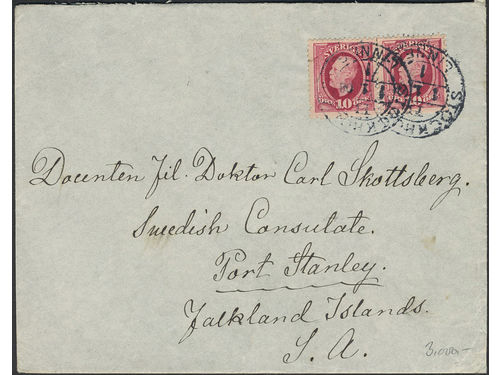 SVERIGE
10
Docenten fil. Doktor Carl Skottsberg.
Swedish Consulate.
Port Stanley.
Falkland Islands.
S. A.
3.000:-